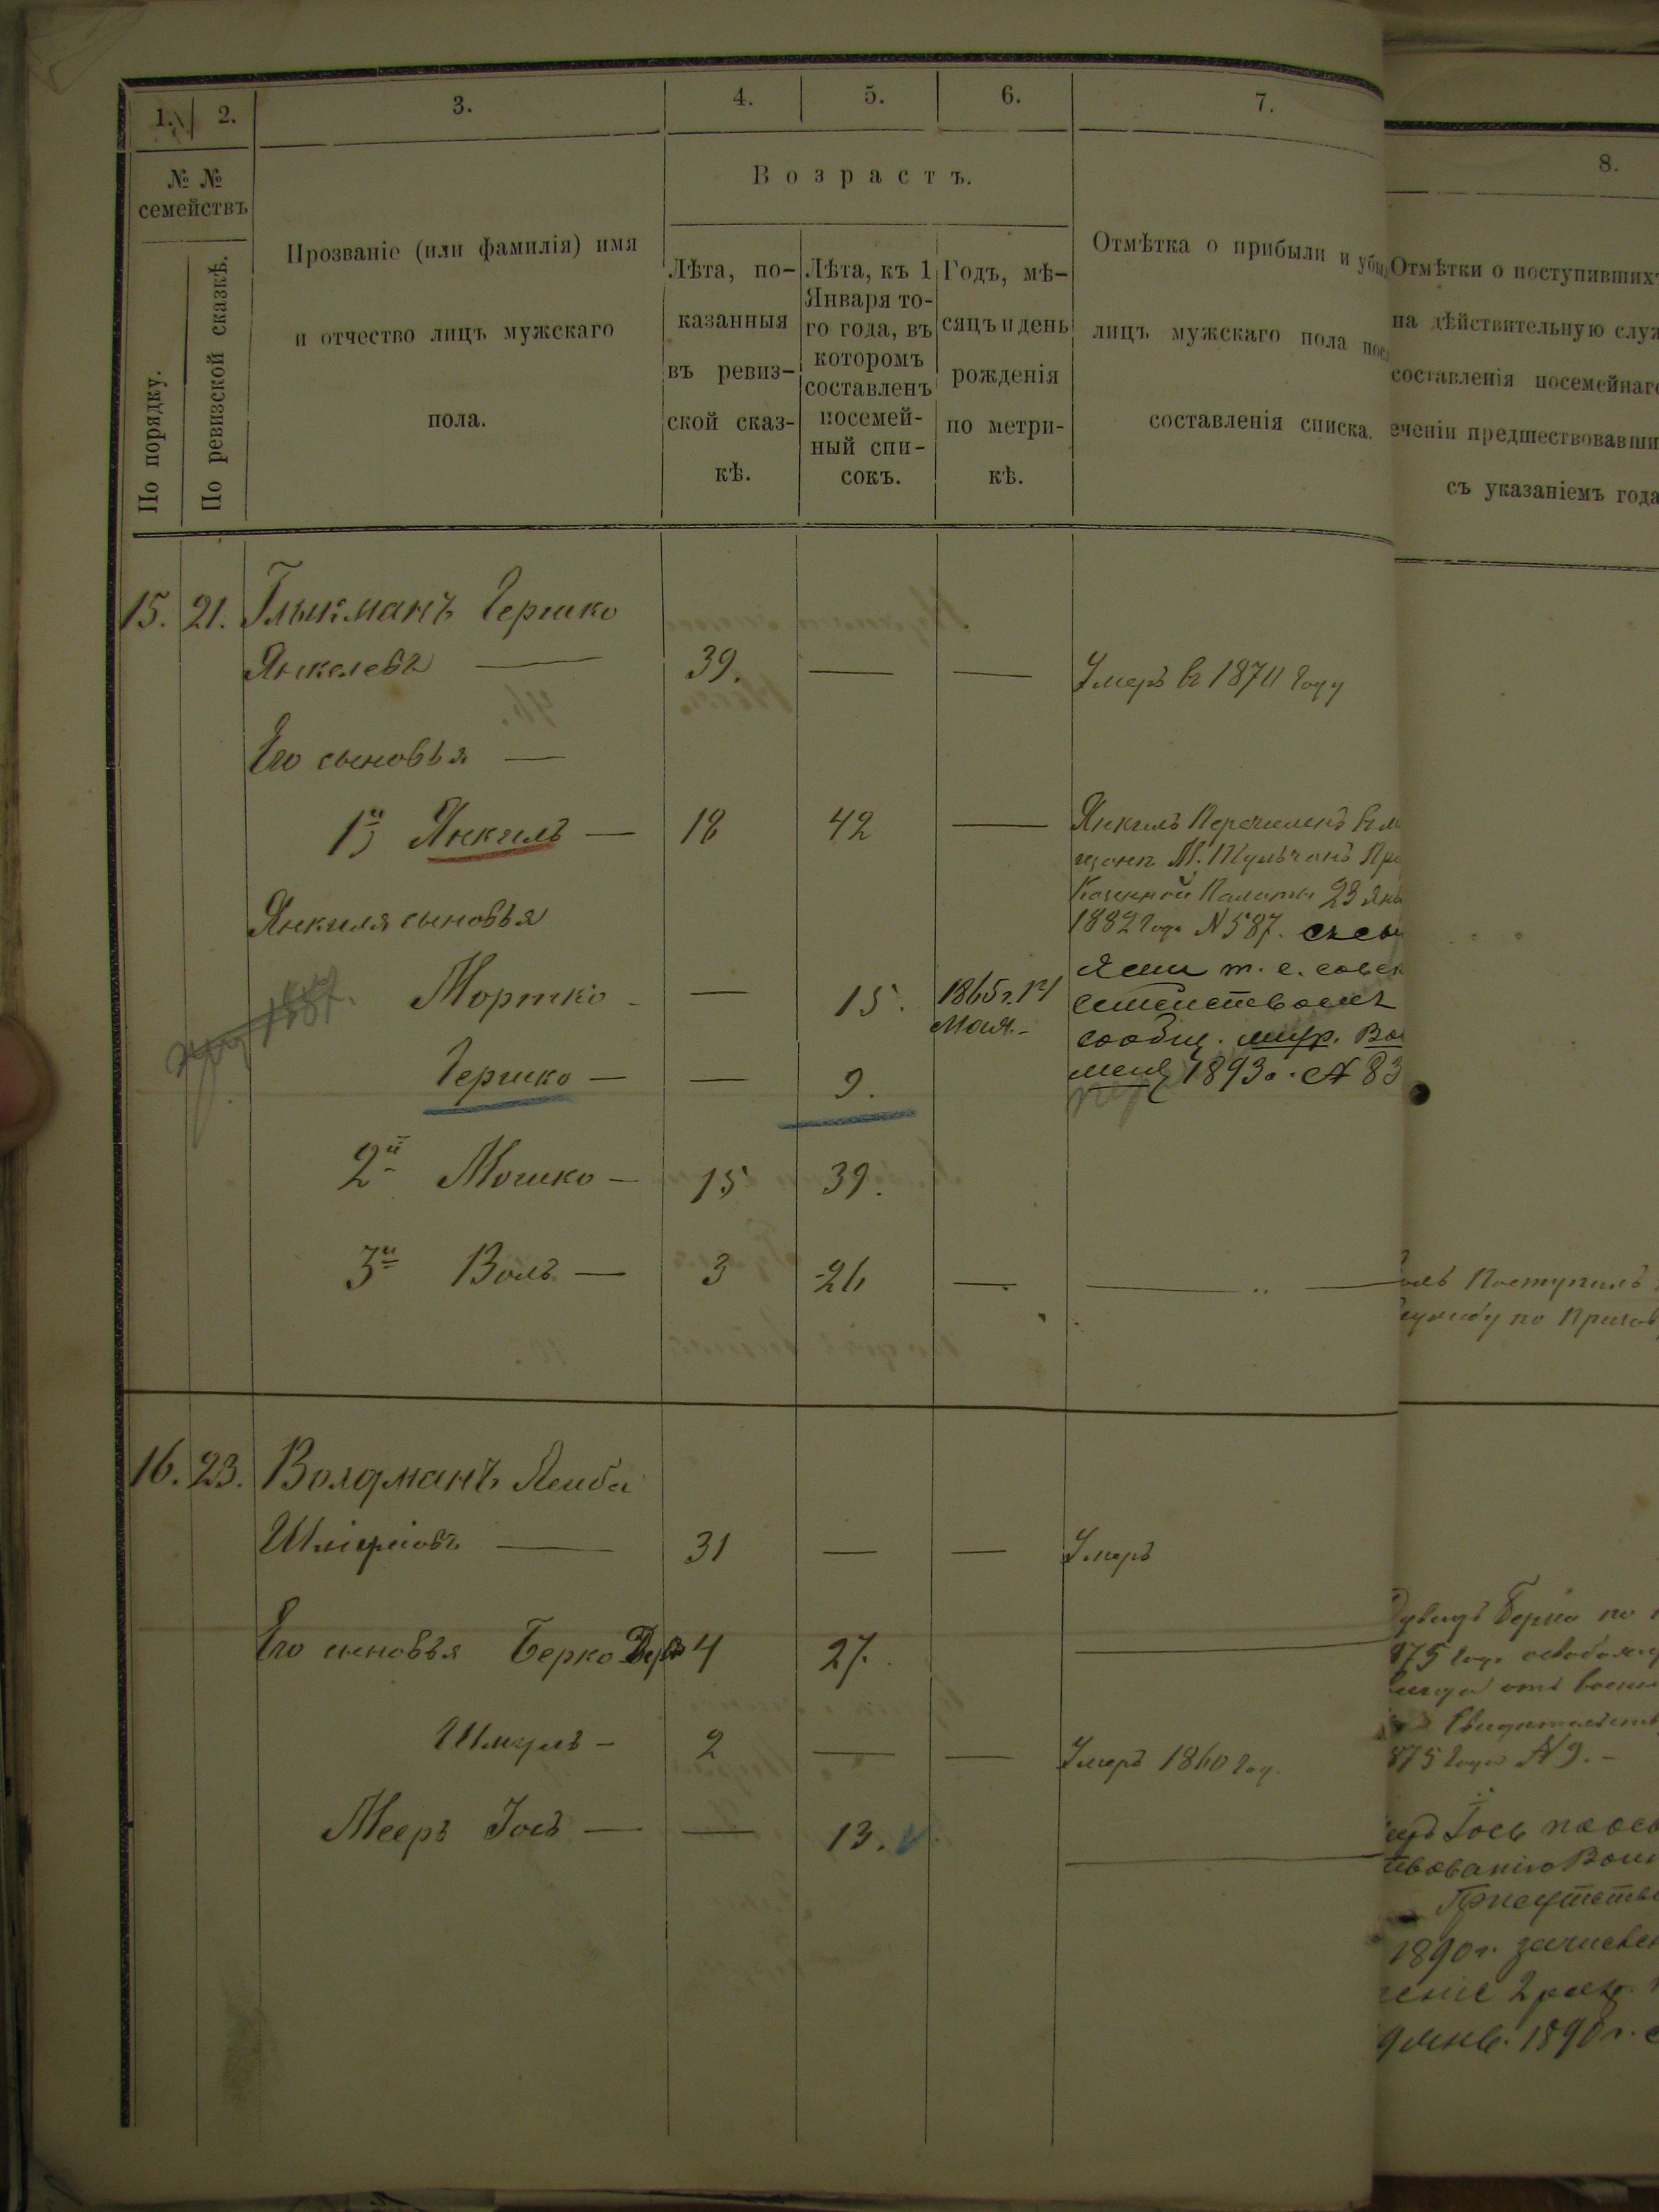 1. 2. 3. 4. 5. 6. 7.
8.
№ №
семействъ
По порядку.
По ревизской сказкѣ.
Прозваніе (или фамилія) имя
и отчество лицъ мужскаго
пола.
Возрастъ.
Лѣта, по-
казанныя
въ ревиз-
ской сказ-
кѣ.
Лѣта, къ 1
Января то-
го года, въ
которомъ
составленъ
посемей-
ный спи-
сокъ.
Годъ, мѣ-
сяцъ и день
рожденія
по метри-
кѣ.
Отмѣтка о прибыли и убы
лицъ мужскаго пола пос
составленія списка.
Отмѣтки о поступившихъ
на дѣйствительную служ
составленія посемейнаго
еченіи предшествовавши
съ указаніемъ года
15. 21. Глыкманъ Гершко
Янкелевъ — 39. — — Умеръ въ 1874 году
Его сыновья —
1й Янкель — 18 42 —
Янкель Перечисленъ въ м
щане М. Тульчинъ
Казенной Палаты 23 Янв
1882 года N 587. съ сы
т. е. совсѣ
семействомъ
сообщ. 1893 г. № 83
Янкеля сыновья
Мортко — 15. 1865 г. 14
Мая.
1887.
Гершко — — 9.
2й Мошко — 15 39.
3й Воль — 3 26 — — " —
оль Поступилъ
службу по
16. 23. Волдманъ Лейба
31 — — Умеръ
Его сыновья Берко 4 27.
Берко по
875 года освобожд
отъ воен
Свидѣтельств
875 года № 9. —
Шмуль — 2 — — Умеръ 1860 год.
Мееръ Іось — — 13. V
Іось
ствованію Воин
Присутств
1890 г. зачислен
2 разр.
1890 г.